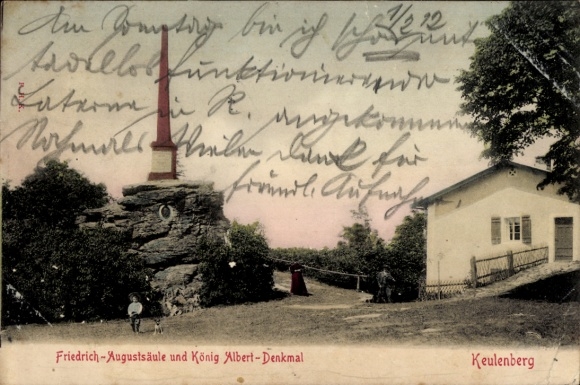 1/2 12
Am Sonntag bin ich schon mit
tadellos funktionierender
Laterne in R. angekommen
Nochmals Vielen Dank für
freundl. Aufnahme.
Friedrich-Augustsäule und König Albert-Denkmal
Keulenberg